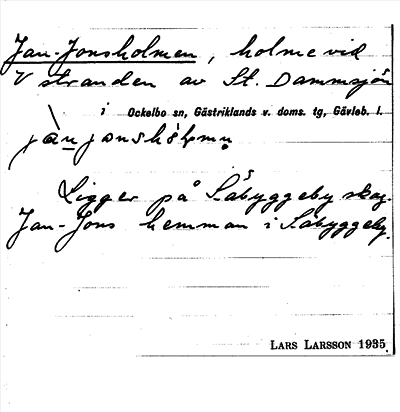 Jan-Jonsholmen, holme vid
V stranden av St. Dammsjön
i Ockelbo sn, Gästriklands v. doms. tg, Gävleb. l.
jànjonshòlmn̥
Ligger på Såbyggeby skog.
Jan-Jons hemman i Såbyggeby.
LARS LARSSON 1935